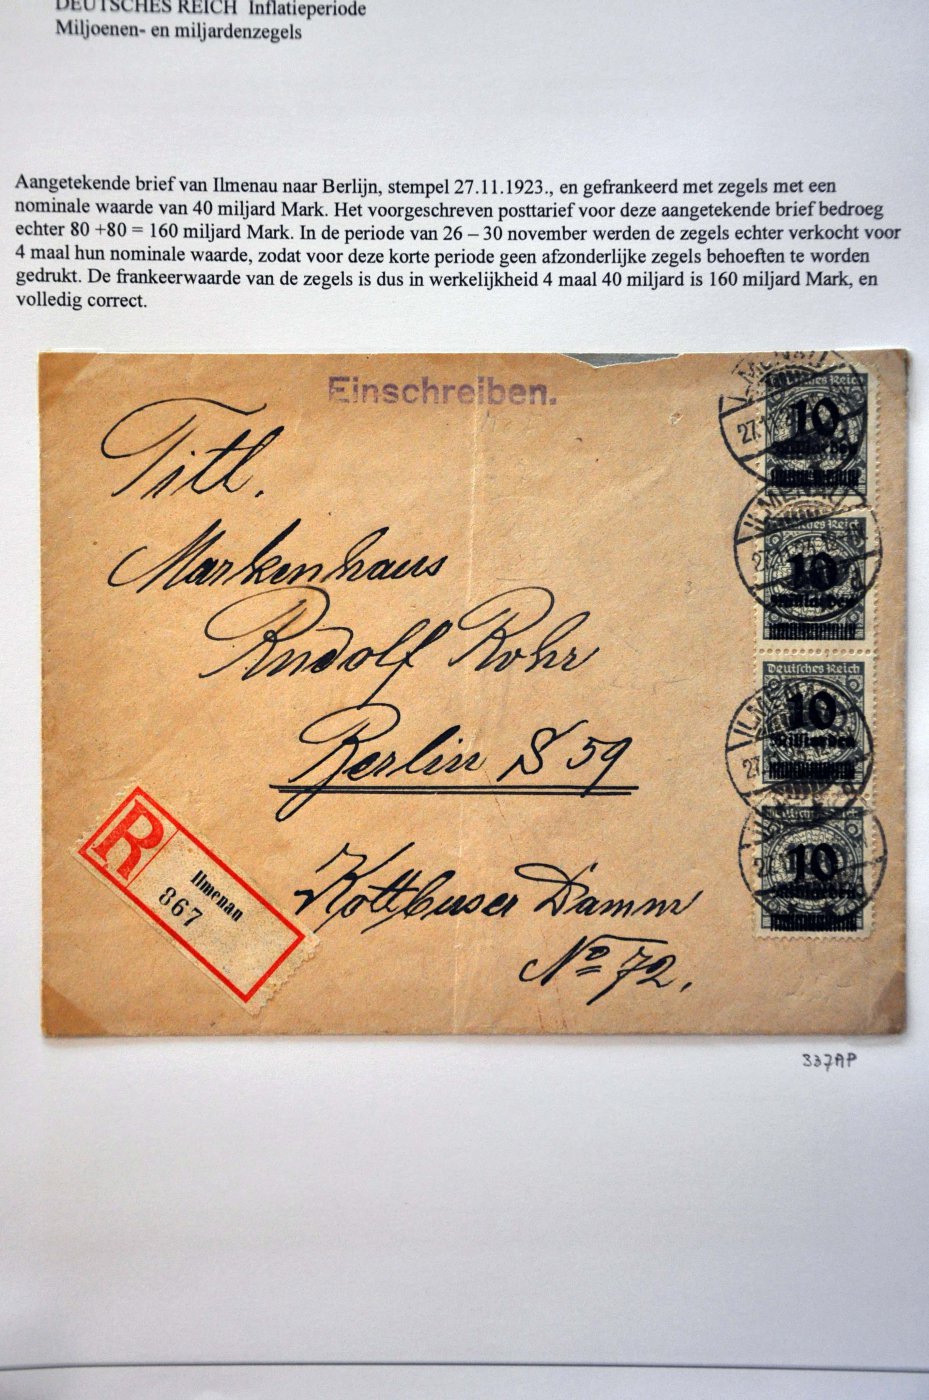 DEUTSCHES REICH Inflatieperiode
Miljoenen- en miljardenzegels
Aangetekende brief van Ilmenau naar Berlijn, stempel 27.11.1923., en gefrankeerd met zegels met een
nominale waarde van 40 miljard Mark. Het voorgeschreven posttarief voor deze aangetekende brief bedroeg
echter 80 +80 = 160 miljard Mark. In de periode van 26 – 30 november werden de zegels echter verkocht voor
4 maal hun nominale waarde, zodat voor deze korte periode geen afzonderlijke zegels behoeften te worden
gedrukt. De frankeerwaarde van de zegels is dus in werkelijkheid 4 maal 40 miljard is 160 miljard Mark, en
volledig correct.
Einschreiben.
Titl.
Markenhaus
Rudolf Rohr
Berlin S 59
Kottbuser Damm
No 72.
R
Ilmenau
867
ILMENAU
Deutsches Reich
10
Milliarden
ILMENAU
Deutsches Reich
10
Milliarden
ILMENAU
Deutsches Reich
10
Milliarden
10
Milliarden
337AP